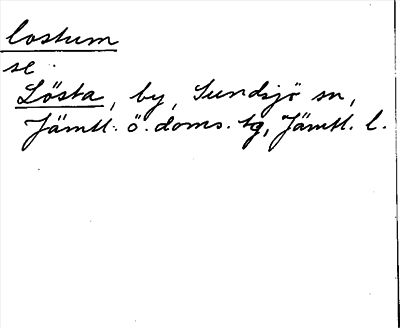 lostum
se
Lösta, by, Sundsjö sn,
Jämtl. ö. doms. tg, Jämtl. l.